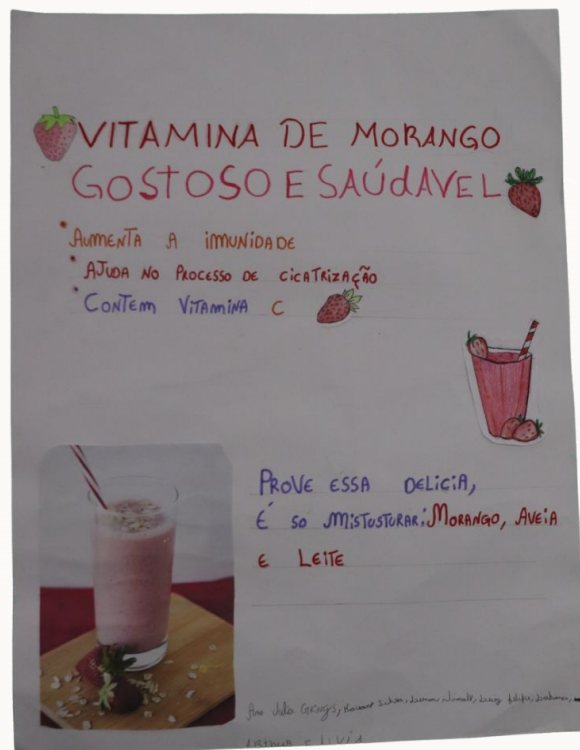 VITAMINA DE MORANGO
GOSTOSO E SAÚdAVEL
• AUMENTA A iMUNiDADE
• AJUDA NO PROCESSO DE CiCATRiZAÇÃO
• CONTEM VITAMINA C
PROVE ESSA DELICIA,
É SO MISTUSTURAR: MORANGO, AVEiA
E LEITE
Ana Julia